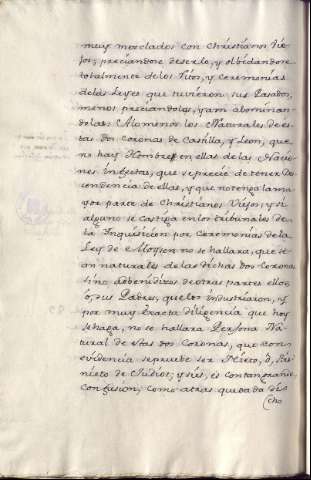 muy mezclados con Christianos Vie-
jos, preciandose deserlo, y olbidandose
totalmente delos Ritos, y Ceremonias
delas Leyes que tuvieron sus Pasados,
menospreciandolas, y aun abominan-
dolas. Alomenos los Naturales de es-
tas dos Coronas de Castilla, y Leon, que
no hay Hombre en ellas de las Nacio-
nes infectas, que se precie de tener Des-
cendencia de ellas, y que no tenga la ma-
yor parte de Christianos Viejos, y si
alguno se Castiga en los tribunales de
la Inquisicion por Ceremonias de la
Ley de Moysen no se hallara, que se-
an naturales de las dichas dos Coronas
sino Adbenidizos de otras partes ellos
ó, sus Padres, que los industriaron, y
por muy exacta diligencia que hoy
se haga, no se hallara Persona Na-
tural de estas dos Coronas, que con
evidencia se pruebe ser Nieto, ó, Bis-
nieto de Judios; y si es, es con tan grande
Confusion, como atras queda da di-
cho